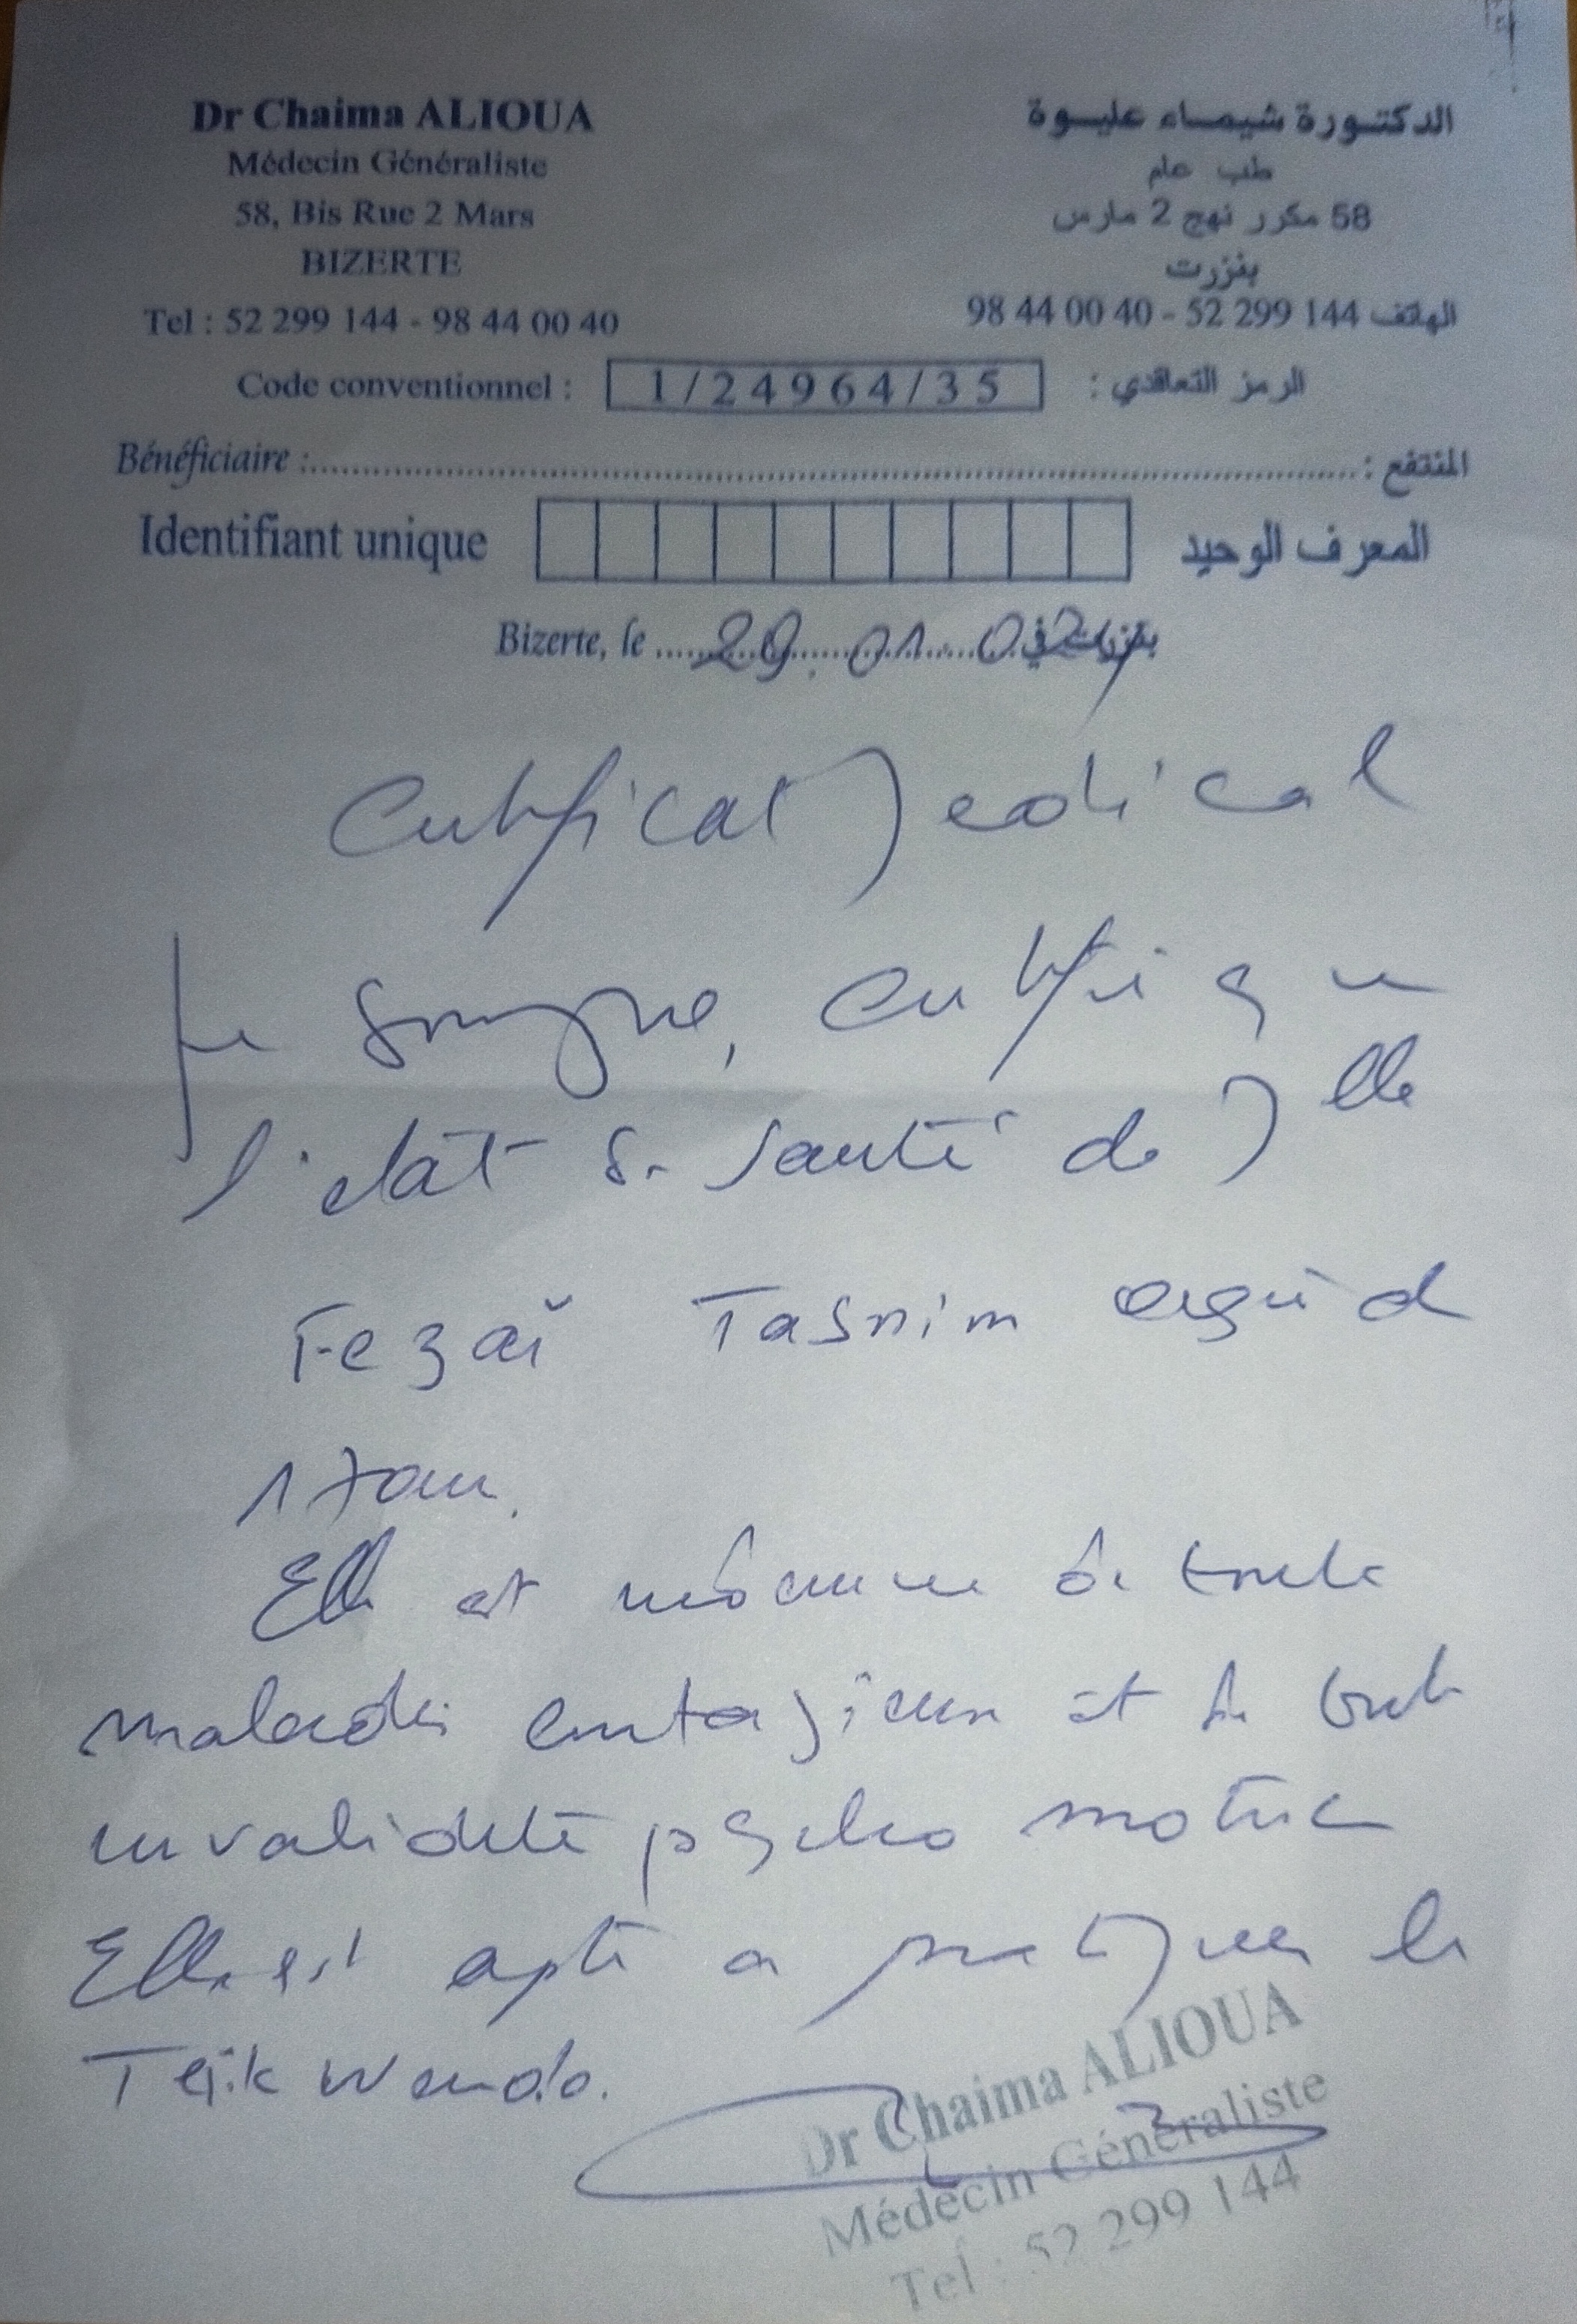 Dr Chaima ALIOUA
Médecin Généraliste
58, Bis Rue 2 Mars
BIZERTE
Tel : 52 299 144 - 98 44 00 40
الدكتورة شيماء عليوة
طب عام
58 مكرر نهج 2 مارس
بنزرت
الهاتف 144 299 52 - 40 00 44 98
Code conventionnel : 1/24964/35 الرمز التعاقدي :
Bénéficiaire : المنتفع :
Identifiant unique المعرف الوحيد
Bizerte, le 29.01 بنزرت في
Certificat Medical
Je soussigné, certifie que
l'état de santé de Mlle
Fezaï Tasnim agée de
17 ans.
Elle est indemne de toute
maladie contagieuse et de toute
invalidité psycho motrice
Elle est apte a pratiquer le
Teik Wendo.
Dr Chaima ALIOUA
Médecin Généraliste
Tel : 52 299 144